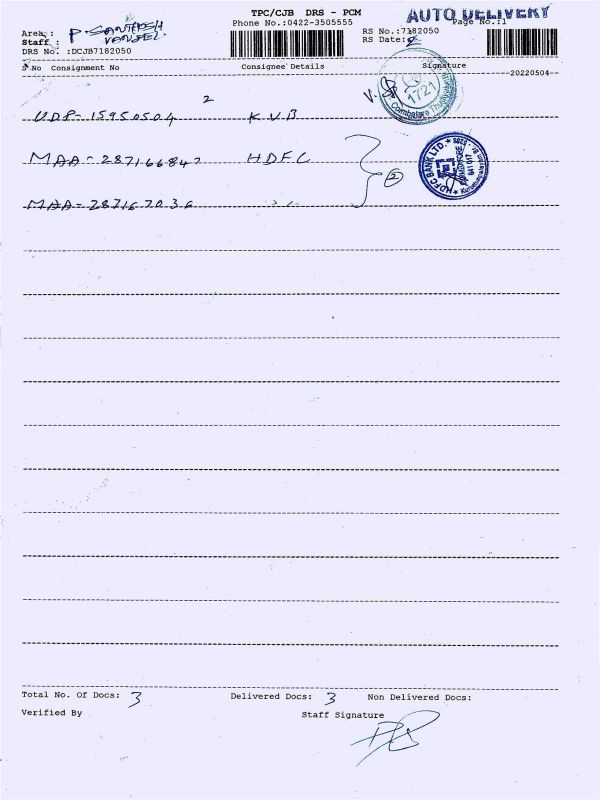 TPC/CJB DRS - PCM
AUTO DELIVERY
Phone No.:0422-3505555
Page No.:1
Area :
P. SANTHOSH
RS No.:7182050
Staff :
RS Date:
DRS No. :DCJB7182050
S No Consignment No Consignee Details Signature
20220504
2
UDP-15950504 KVB
1721
Coimbatore
MAA-287166842 HDFC
2
HDFC BANK LTD.
MAA-287167036 〃
Total No. Of Docs: 3 Delivered Docs: 3 Non Delivered Docs:
Verified By Staff Signature